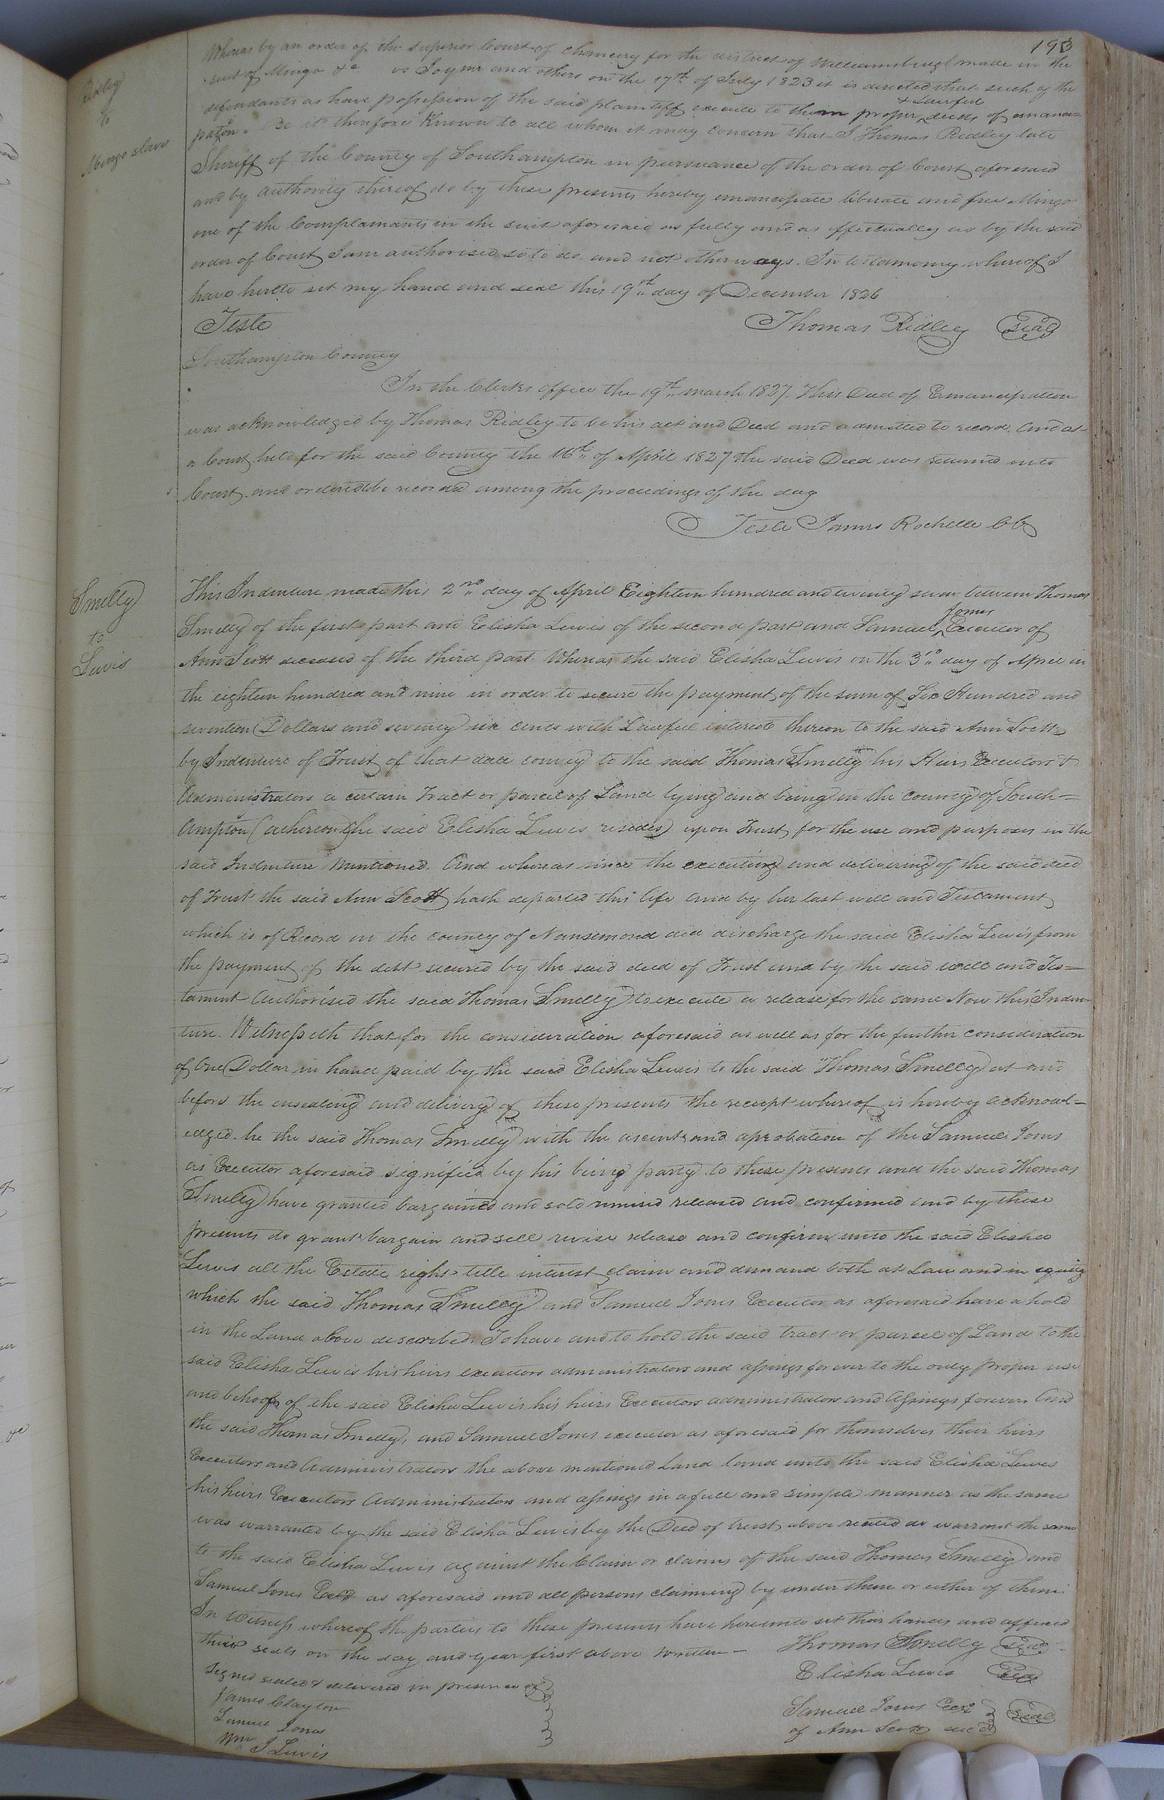 193
Ridley
to
Mingo slave
Whereas by an order of the Superior Court of Chancery for the district of Williamsburg made in the
suit of Mingo &c vs Joyner and others on the 17th of July 1823 it is directed that such of the
defendants as have possession of the said plaintiff execute to them proper & Lawful deeds of emanci-
pation. Be it therefore Known to all whom it may concern that I Thomas Ridley late
Sheriff of the County of Southampton in pursuance of the order of Court aforesaid
and by authority thereof do by these presents hereby emancipate liberate and free Mingo
one of the Complainants in the suit aforesaid as fully and as effectually as by the said
order of Court I am authorised so to do and not otherways. In testamony whereof I
have hereto set my hand and seal this 19th day of December 1826
Teste Thomas Ridley Seal
Southampton County
In the Clerks office the 19th march 1827. This Deed of Emancipation
was acknowledged by Thomas Ridley to be his act and Deed and admitted to record. And at
a Court held for the said County the 16th of April 1827 the said Deed was returned into
Court and ordered to be recorded among the proceedings of the day
Teste James Rochelle CC
Smelly
to
Lewis
This Indenture made this 2nd day of April Eighteen hundred and twenty seven between Thomas
Smelly of the first part and Elisha Lewis of the second part and Samuel Jones Executor of
Ann Scott deceased of the third part. Whereas the said Elisha Lewis on the 3rd day of April in
the eighteen hundred and nine in order to secure the payment of the sum of Six Hundred and
seventeen Dollars and seventy six cents with Lawful interest thereon to the said Ann Scott
by Indenture of Trust of that date convey to the said Thomas Smelly his Heirs Executors &
Administrators a certain Tract or parcel of Land lying and being in the county of South-
ampton (whereon the said Elisha Lewis resides) upon Trust for the use and purposes in the
said Indenture mentioned. And whereas since the executing and delivering of the said deed
of Trust the said Ann Scott hath departed this life and by her last will and Testament
which is of Record in the county of Nansemond did discharge the said Elisha Lewis from
the payment of the debt secured by the said deed of Trust and by the said will and Tes-
tament Authorised the said Thomas Smelly to execute a release for the same Now this Inden-
ture Witnesseth that for the consideration aforesaid as well as for the further consideration
of One Dollar in hand paid by the said Elisha Lewis to the said Thomas Smelly at and
before the ensealing and delivery of these presents the receipt whereof is hereby acknowl-
edged he the said Thomas Smelly with the assent and aprobation of the Samuel Jones
as Executor aforesaid signified by his being party to these presents and the said Thomas
Smelly have granted bargained and sold remised released and confirmed and by these
presents do grant bargain and sell remise release and confirm unto the said Elisha
Lewis all the Estate right title interest claim and demand both at Law and in equity
which the said Thomas Smelly and Samuel Jones Executor as aforesaid have a hold
in the Land above described. To have and to hold the said tract or parcel of Land to the
said Elisha Lewis his heirs executors administrators and assings forever to the only proper use
and behoof of the said Elisha Lewis his heirs Executors administrators and Assings forever And
the said Thomas Smelly, and Samuel Jones executor as aforesaid for themselves their heirs
Executors and Administrators the above mentioned Land land unto the said Elisha Lewis
his heirs Executors Administrators and assings in a full and simple manner as the same
was warranted by the said Elisha Lewis by the Deed of trust above recited do warrant the same
to the said Elisha Lewis against the Claim or claims of the said Thomas Smelly and
Samuel Jones as aforesaid and all persons claiming by under them or either of them
In Witness whereof the parties to these presents have hereunto set their hands and affixed
their seals on the day and year first above written Thomas Smelly Seal
Signed sealed & delivered in presence of Elisha Lewis Seal
James Clayton Samuel Jones Exor Seal
Samuel Jones of Ann Scott decd
Wm J Lewis